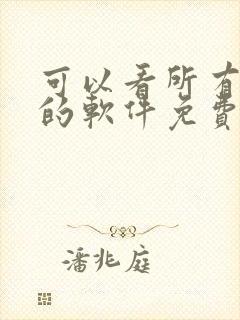 可以看所有
的軟件免費
潘兆庭